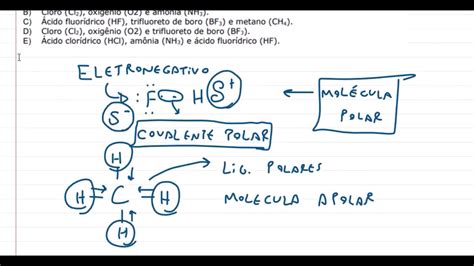 B) Cloro (Cl₂), oxigênio (O2) e amônia (NH₃).
C) Ácido fluorídrico (HF), trifluoreto de boro (BF₃) e metano (CH₄).
D) Cloro (Cl₂), oxigênio (O2) e trifluoreto de boro (BF₃).
E) Ácido clorídrico (HCl), amônia (NH₃) e ácido fluorídrico (HF).
ELETRONEGATIVO
F H S⁺
MOLÉCULA
POLAR
S⁻
COVALENTE POLAR
H
LIG. POLARES
H C H
MOLECULA APOLAR
H